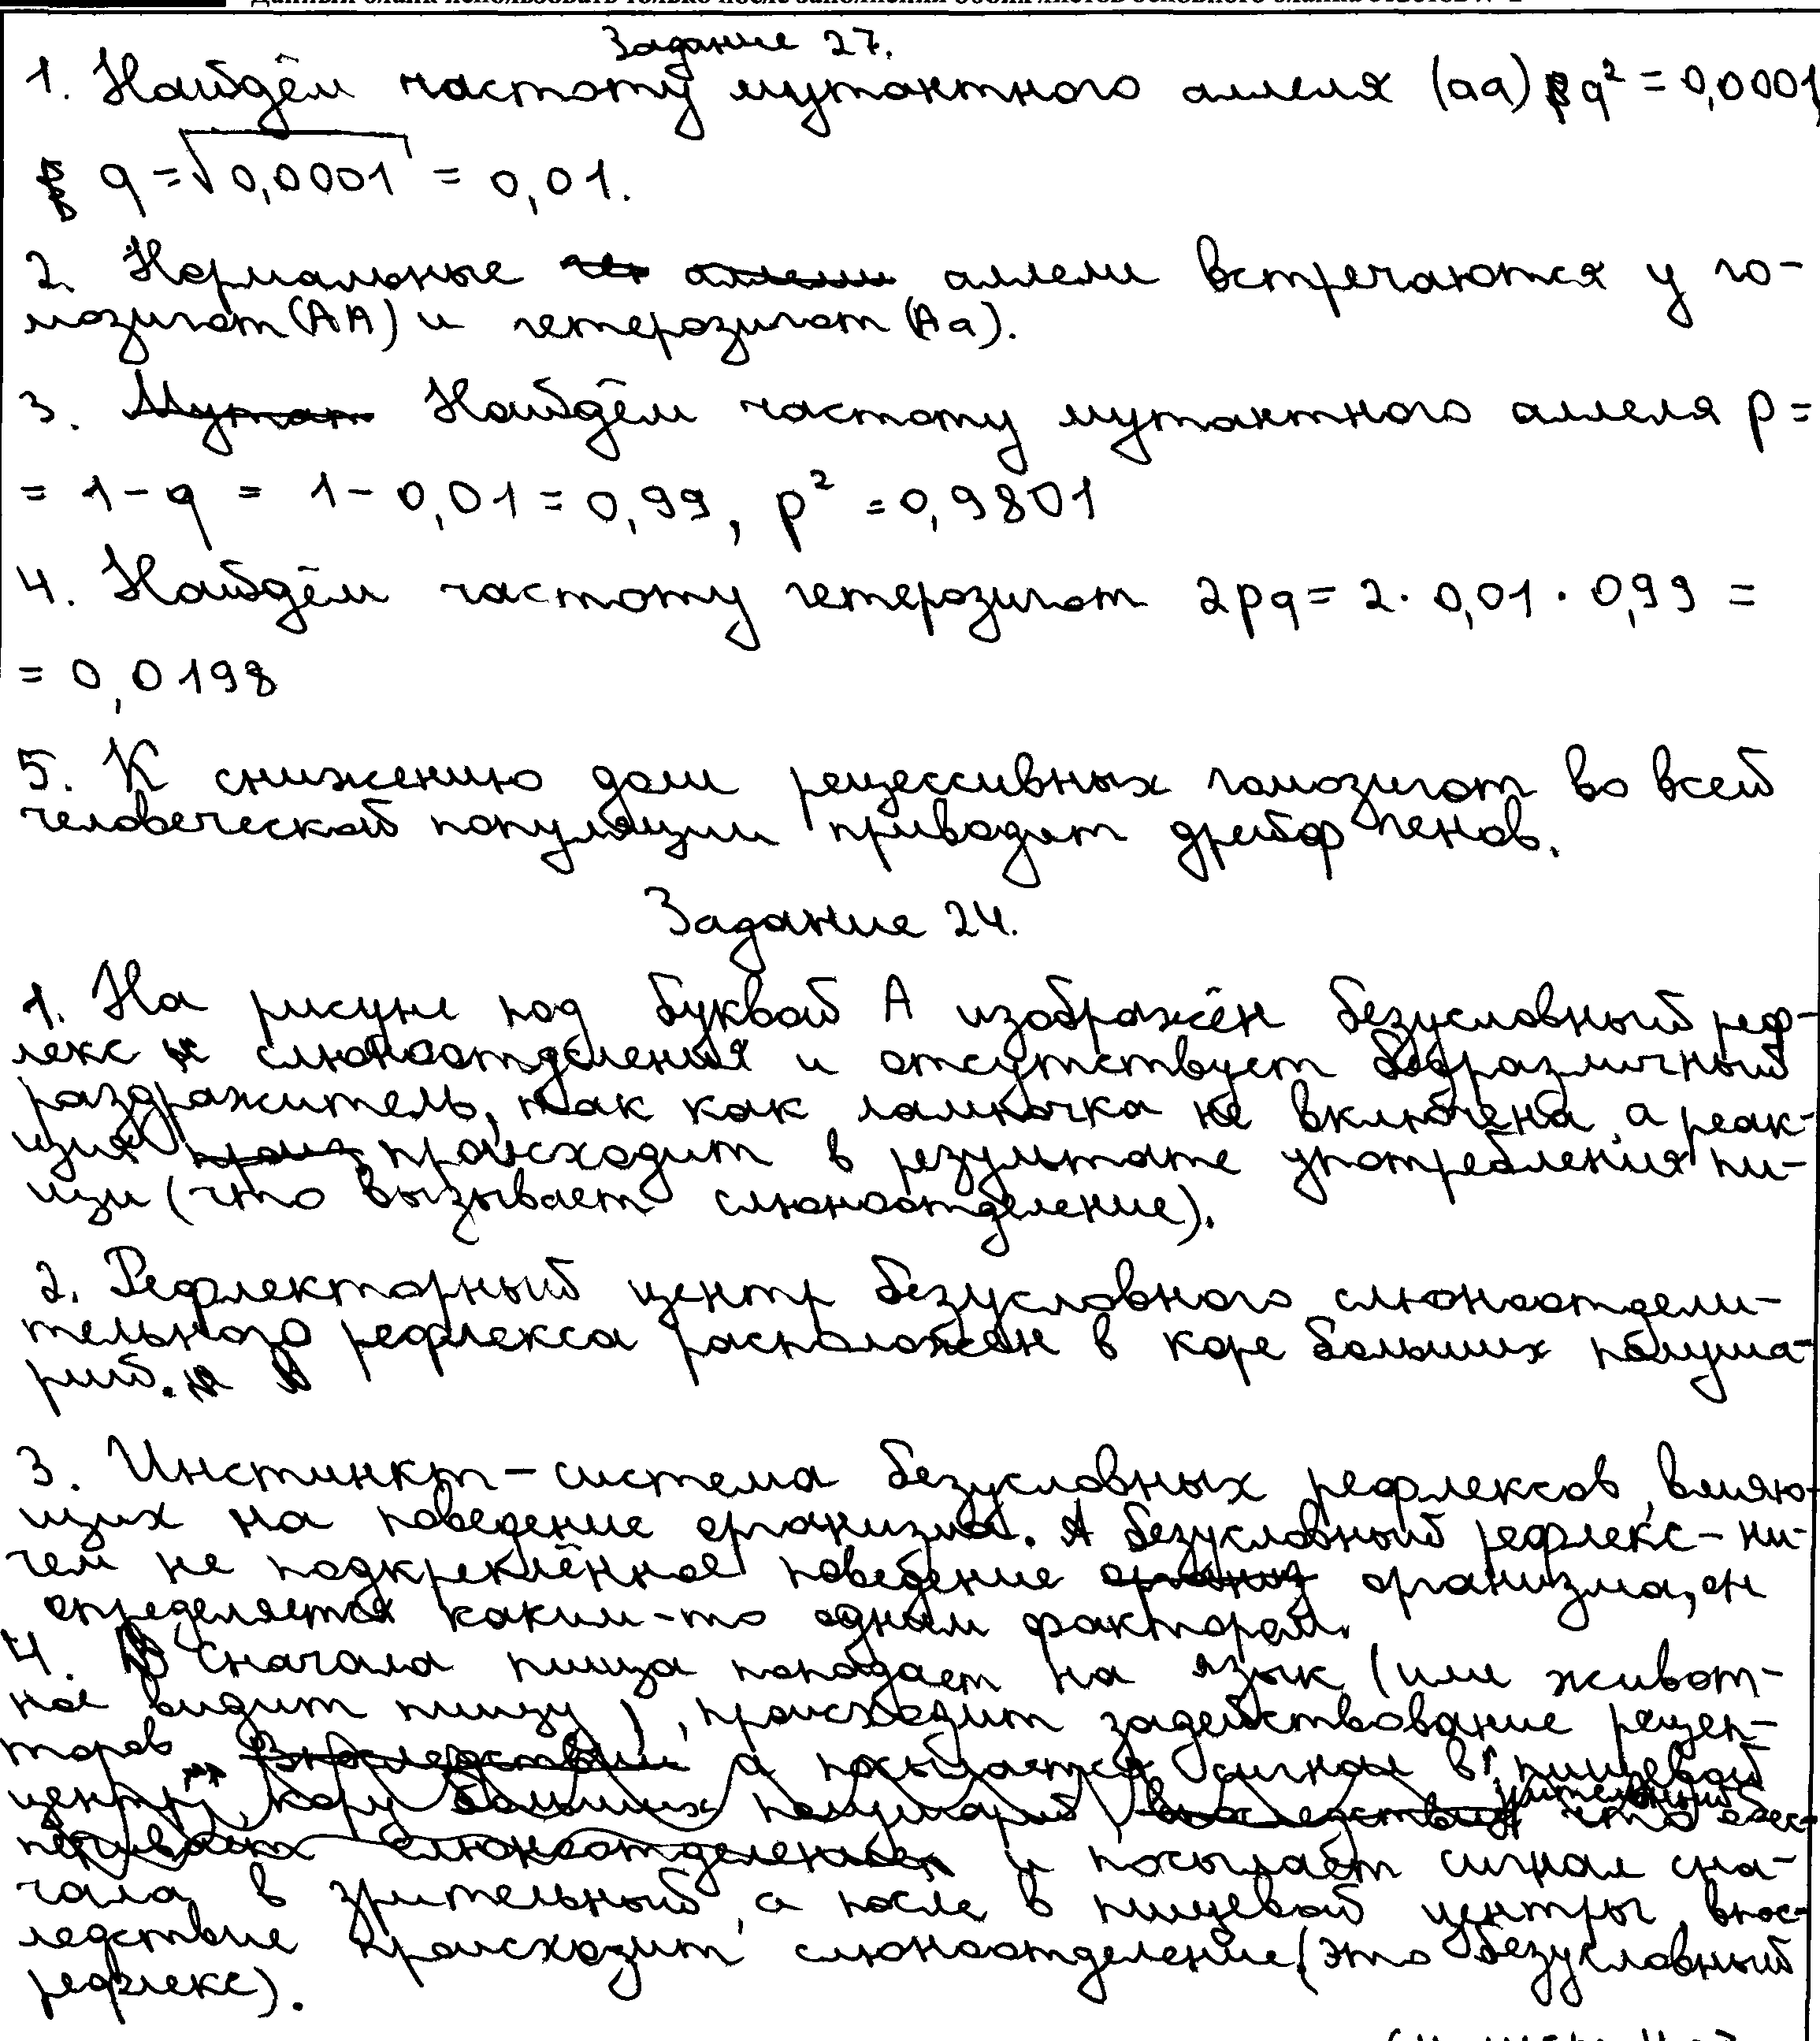 Задание 27.
1. Найдём частоту мутантного аллеля (aa) q² = 0,0001,
q = √0,0001 = 0,01.
2. Нормальные аллели встречаются у го-
мозигот (АА) и гетерозигот (Аа).
3. Найдём частоту мутантного аллеля p =
= 1 - q = 1 - 0,01 = 0,99, p² = 0,9801
4. Найдём частоту гетерозигот 2pq = 2 · 0,01 · 0,99 =
= 0,0198
5. К снижению доли рецессивных гомозигот во всей
человеческой популяции приводит дрейф генов.
Задание 24.
1. На рисуне под буквой А изображён безусловный реф-
лекс слюноотделения и отсутствует безразличный
раздражитель, так как лампочка не включена, а реак-
ция происходит в результате употребления пи-
щи (что вызывает слюноотделение).
2. Рефлекторный центр безусловного слюноотдели-
тельного рефлекса расположен в коре больших полуша-
рий.
3. Инстинкт - система безусловных рефлексов, влияю-
щих на поведение организма. А безусловный рефлекс - ни-
чем не подкреплённое поведение организма, он
определяется каким-то одним фактором.
4. Сначала пища попадает на язык (или живот-
ное видит пищу), происходит задействование рецеп-
торов
и посылает сигнал сна-
чала в зрительный, а после в пищевой центры, впос-
ледствие происходит слюноотделение (это безусловный
рефлекс).